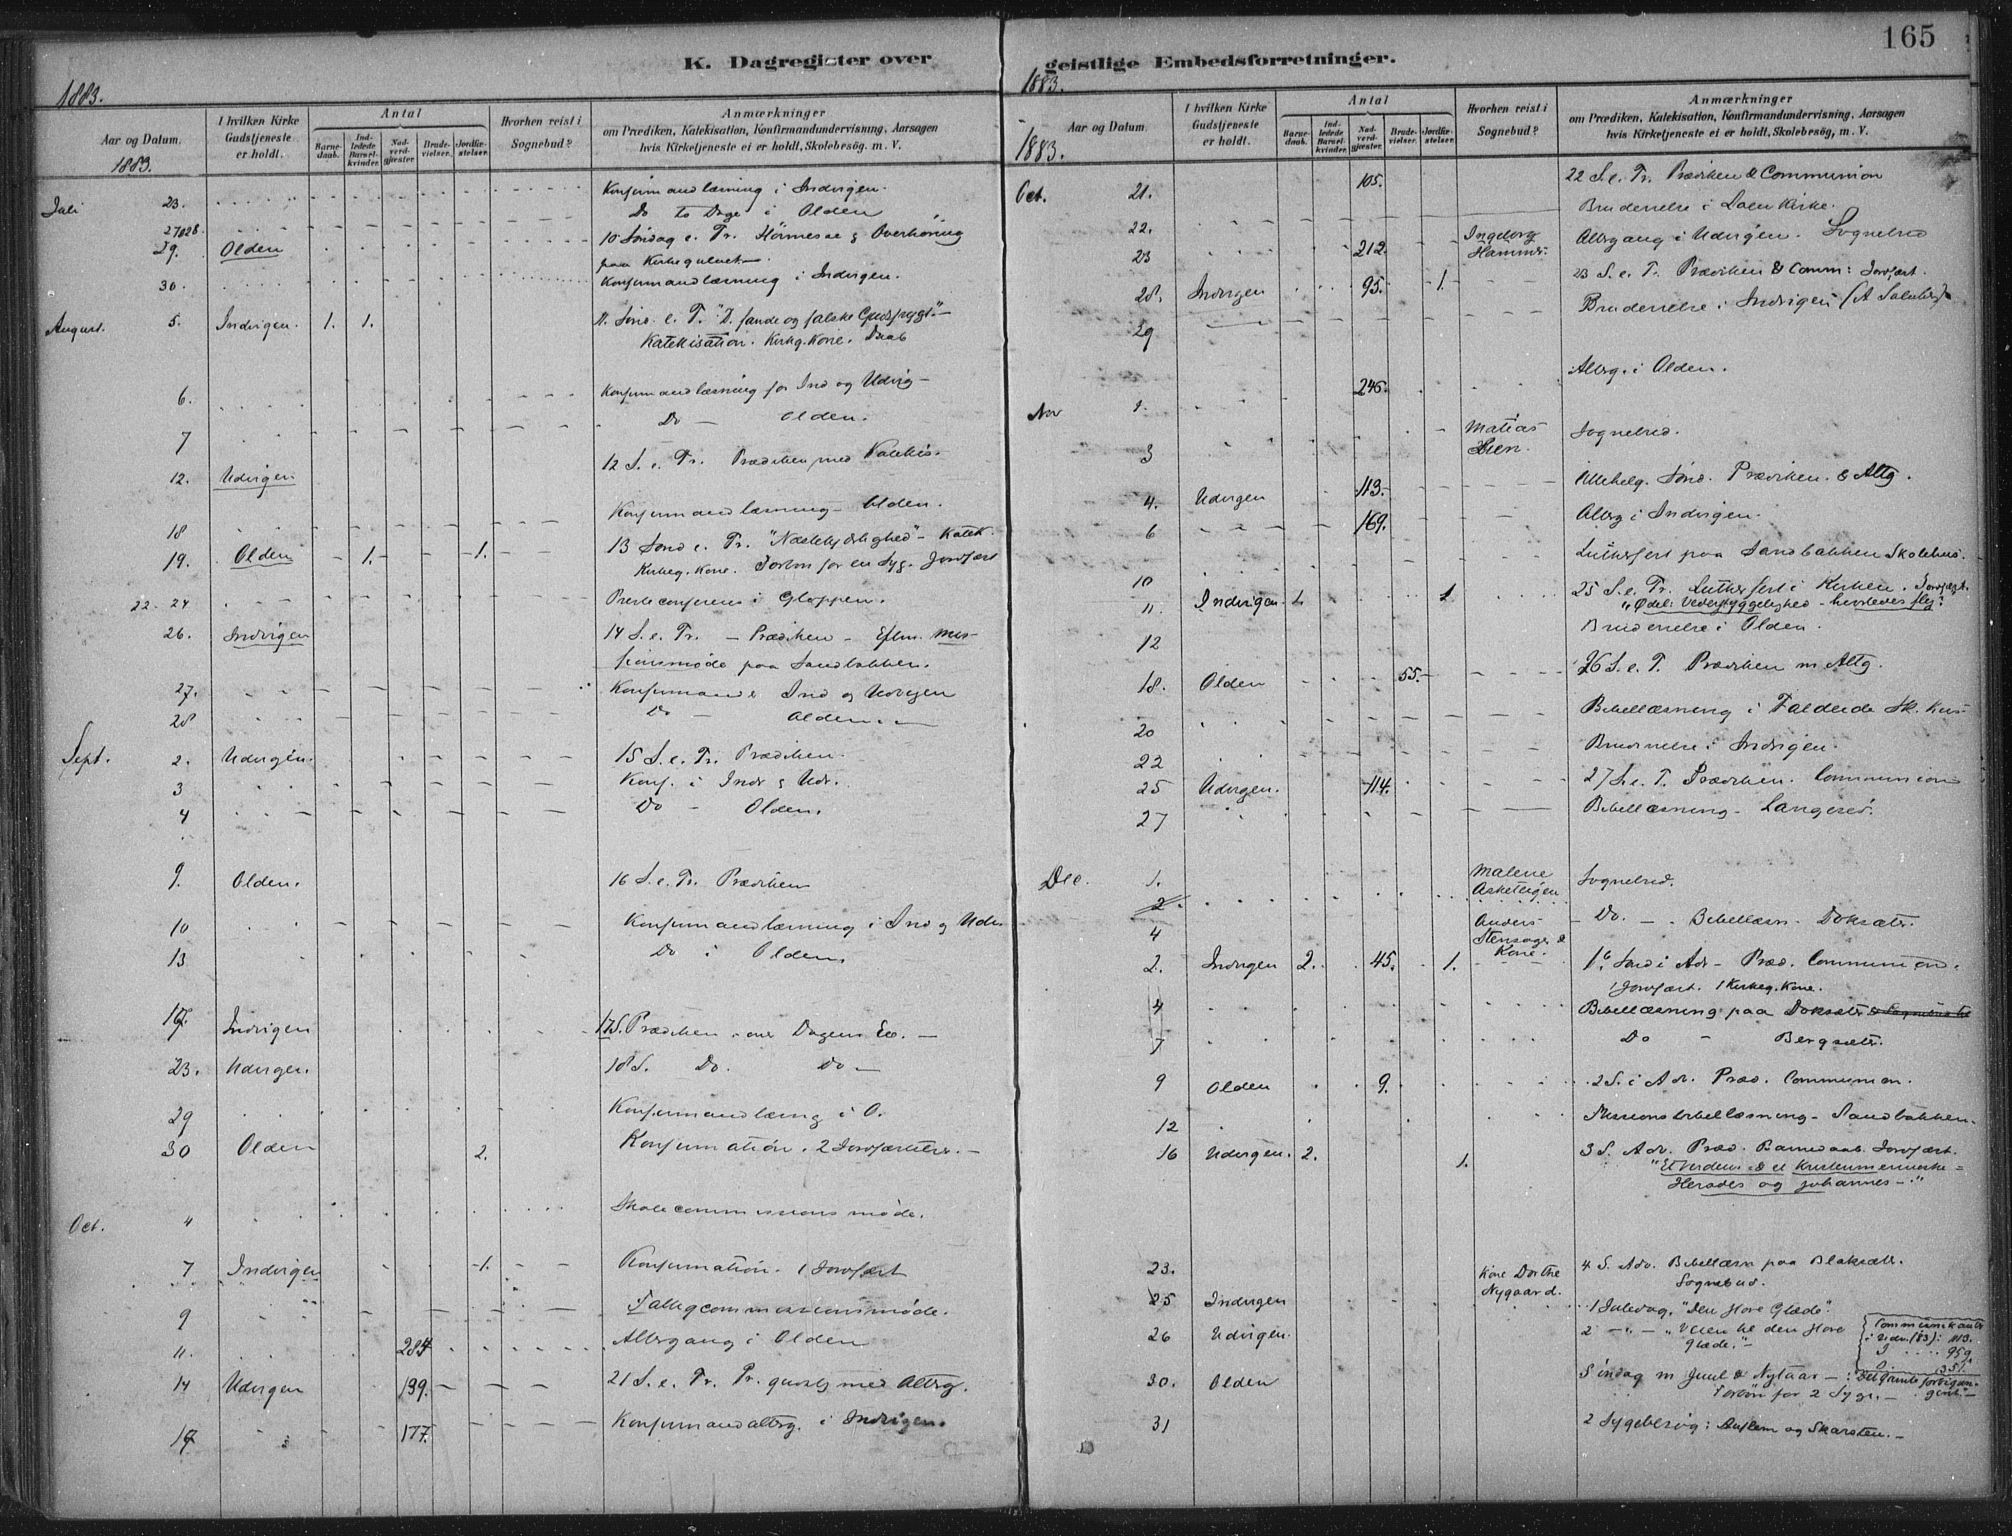 165
K. Dagregister over
geistlige Embedsforretninger.
1883.
Aar og Datum.
1883.
I hvilken Kirke Gudstjeneste er holdt.
Antal
Barnedaab.
Indledede Barselkvinder.
Nadverdgjester
Brudevielser.
Jordfæstelser.
Hvorhen reist i Sognebud?
Anmærkninger
om Prædiken, Katekisation, Konfirmandundervisning, Aarsagen
hvis Kirketjeneste ei er holdt, Skolebesög, m. V.
Juli 23. Konfirmandlæsning i Indvigen.
27 & 28. Do to Dage i Olden
29. Olden 10 Søndag e. Tr. Høimesse & Overhøring
paa Kirkegulvet
30. Konfirmandlæsning i Indvigen.
August. 5. Indvigen. 1. 1. 11. Sønd. e. T. "D. sande og falske Gudsfrygt" -
Katekisation. Kirkg. Kone. Daab
6. Konfirmandlæsning for Ind og Udvig -
7 Do - Olden.
12. Udvigen 12 S. e. Tr. Prædiken med Katekis.
18 Konfirmandlæsning - Olden.
19. Olden 1. 1. 13 Sønd e. Tr. "Næstekjærlighed" - Katek.
Kirkeg. Kone. Forbøn for en Syg. Jordfæst
22-24 Præsteconferens i Gloppen.
26. Indvigen 14 S. e. Tr. - Prædiken - Efterm. Mis-
sionsmøde paa Sandbakken.
27. Konfirmander Ind og Udvigen
28 Do - Olden
Sept. 2. Udvigen. 15 S. e. Tr. Prædiken
3 Konf. i Indv & Udv.
4 Do - Olden.
9. Olden. 16 S. e. Tr. Prædiken
10 Konfirmandlæsning i Ind og Udv.
13 Do i Olden
16. Indvigen 17 S. Prædiken over Dagens Ev. -
23. Udvigen. 18 S. Do. Do -
29 Konfirmandlæsng i O.
30 Olden 2. Konfirmation. 2 Jordfæstelser. -
Oct. 4 Skolecommissionsmøde.
7 Indvigen 1. Konfirmation. 1 Jordfæst
9 Fattigcommissionsmøde.
11. 284 Altergang i Olden
14 Udvigen 199. 21 S. e. Tr. Pr. med Altrg.
177. Konfirmandaltrg. i Indvigen.
1883.
1883.
Aar og Datum.
I hvilken Kirke Gudstjeneste er holdt.
Antal
Barnedaab.
Indledede Barselkvinder.
Nadverdgjester
Brudevielser.
Jordfæstelser.
Hvorhen reist i Sognebud?
Anmærkninger
om Prædiken, Katekisation, Konfirmandundervisning, Aarsagen
hvis Kirketjeneste ei er holdt, Skolebesög, m. V.
Oct. 21. 105. 22 S. e. Tr. Prædiken & Communion
22. Brudevielse i Loen Kirke.
23 212. Ingeborg Hammer. Altrgang i Udvigen. Sognebud
28. Indvigen 95. 1. 23 S. e. T. Prædiken & Comm: Jordfæst.
29 Brudevielse i Indvigen
Nov 1. 246. Altrg. i Olden.
3 Matias Sognebud.
4. Udvigen 113. Allehelg. Sønd. Prædiken. & Altg.
6 169. Altrg i Indvigen.
10 Lutherfest paa Sandbakken Skolehus.
11. Indvigen 1. 1 25 S. e. Tr. Lutherfest i Kirken. Jordfæst.
12 Brudevielse i Olden.
18. Olden 55. 26 S. e. T. Prædiken m Altg.
20 Bibellæsning i Faldeide Sk. hus
22 Brudevielse i Indvigen.
25 Udvigen. 114. 27 S. e. T. Prædiken. Communion
27 Bibellæsning - Langesæt.
Dec. 1. Malene Sognebud.
2.
4 Anders & Kone. Do. - Bibellæsn. Doksæter.
2. Indvigen 2. 45. 1. 1ᵉ Sønd i Adv - Præd. Communion.
1 Jordfæst. 1 Kirkeg. Kone.
4 Bibellæsning paa Doksæter
7 Do - Bergsæter.
9 Olden 9. 2 S. i Adv. Præd. Communion.
12 Missionsbibellæsning - Sandbakken.
16 Udvigen. 2. 1. 3 S. Adv. Præd. Barnedaab. Jordfæst.
"Et Verdens & et Kristenmenneske =
Herodes og Johannes -"
23. Kone Dorthe Nygaard. 4 S. Adv. Bibellæsn paa Blaksæter.
Sognebud.
25 Indvigen 1 Juledag. "Den store Glæde".
26 Udvigen. 2 -"- "Veien til den store
Glæde."
Communikanter
i Udv. (83): 113.
I 959
O. 351.
30. Olden Søndag m Juul & Nytaar -
Forbøn for 2 Syge. -
31 2 Sygebesøg: Auflem og Skarsten. -